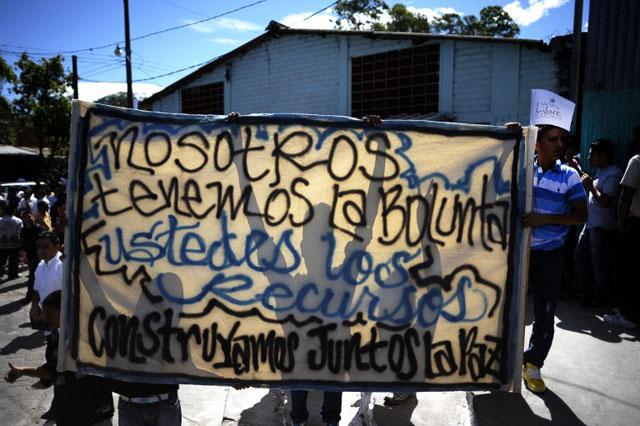 NOSOTROS
tENEMOS la BOluNta
ustedes los
Recursos
Construyamos Juntos la Paz
Libre